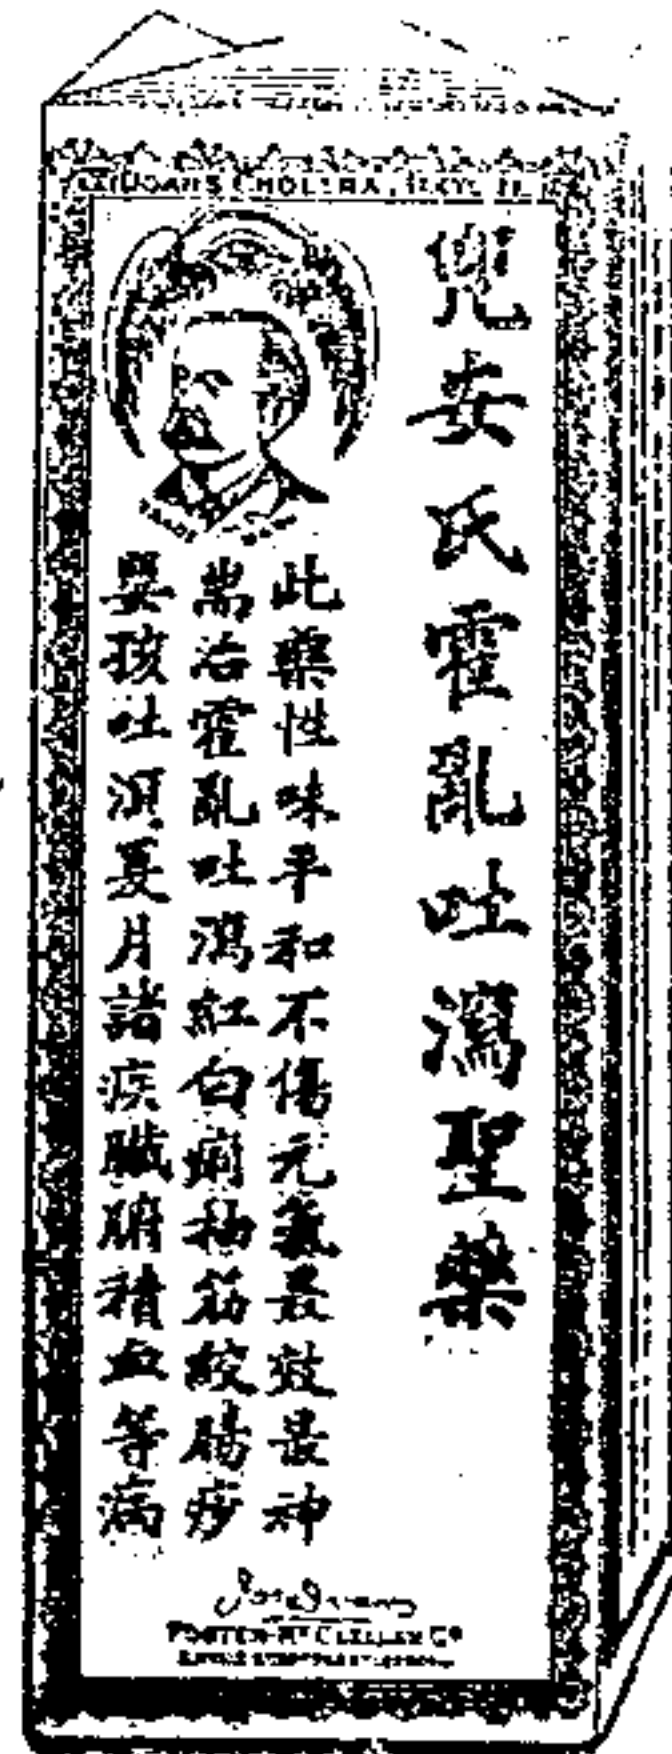 DOAN'S CHOLERA,
兜安氏霍亂吐瀉聖藥
此藥性味平和不傷元氣最效最神
耑治霍亂吐瀉紅白痢抽筋絞腸痧
嬰孩吐瀉夏月諸疾臟腑積血等病
TRADE MARK
FOSTER-McCLELLAN Co